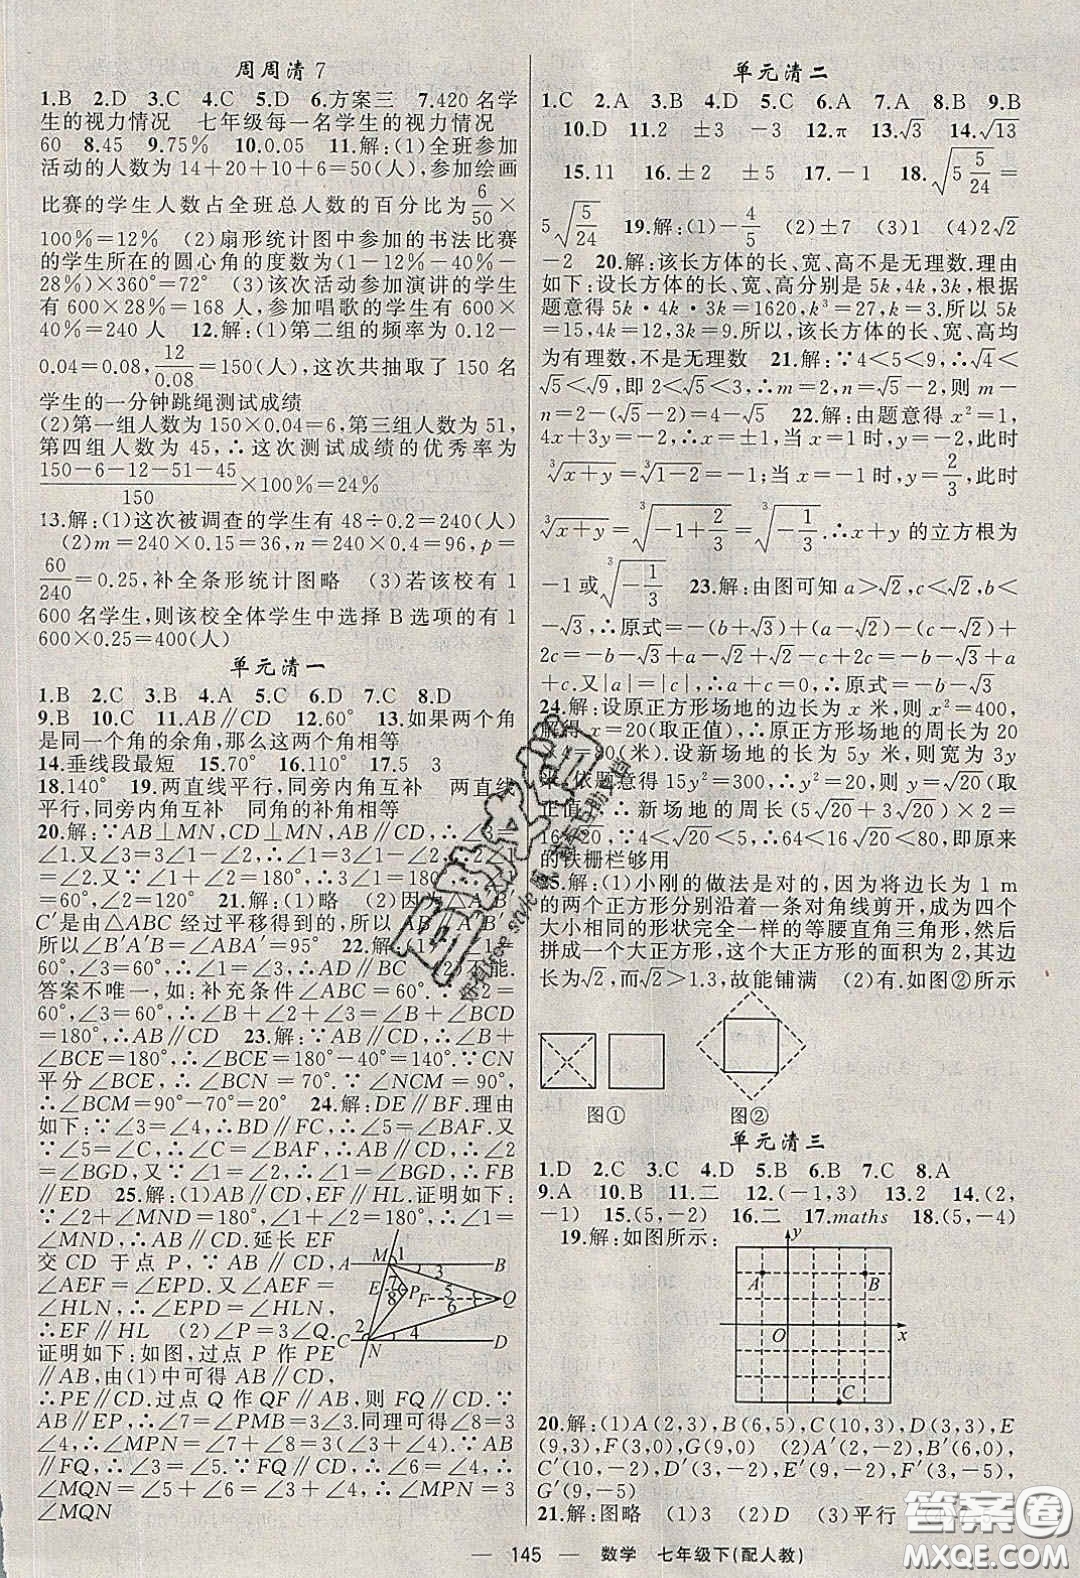 周周清 7
1.B 2.D 3.C 4.C 5.D 6.方案三 7.420 名学
生的视力情况 七年级每一名学生的视力情况
60 8.45 9.75% 10.0.05 11.解:(1)全班参加
活动的人数为 14+20+10+6=50(人),参加绘画
比赛的学生人数占全班总人数的百分比为 6/50 ×
100%=12% (2)扇形统计图中参加的书法比赛
的学生所在的圆心角的度数为(1-12%-40%-
28%)×360°=72° (3)该次活动参加演讲的学生
有 600×28%=168 人,参加唱歌的学生有 600×
40%=240 人 12.解:(1)第二组的频率为 0.12-
0.04=0.08, 12/0.08 =150(人),这次共抽取了 150 名
学生的一分钟跳绳测试成绩
(2)第一组人数为 150×0.04=6,第三组人数为 51,
第四组人数为 45,∴这次测试成绩的优秀率为
(150-6-12-51-45)/150 ×100%=24%
13.解:(1)这次被调查的学生有 48÷0.2=240(人)
(2)m=240×0.15=36,n=240×0.4=96,p=
60/240 =0.25,补全条形统计图略 (3)若该校有 1
600 名学生,则该校全体学生中选择 B 选项的有 1
600×0.25=400(人)
单元清一
1.B 2.C 3.B 4.A 5.C 6.D 7.C 8.D
9.B 10.C 11.AB∥CD 12.60° 13.如果两个角
是同一个角的余角,那么这两个角相等
14.垂线段最短 15.70° 16.110° 17.5 3
18.140° 19.两直线平行,同旁内角互补 两直线
平行,同旁内角互补 同角的补角相等
20.解:∵AB⊥MN,CD⊥MN,AB∥CD,∴∠EFD=
∠1.又∠3=3∠1-∠2,∴∠1=3∠1-∠2,∴2
∠1=∠2.又∠1+∠2=180°,∴3∠1=180°,∴∠1
=60°,∠2=120° 21.解:(1)略 (2)∵△A′B′
C′是由△ABC 经过平移得到的,所以 AB∥A′B′
所以∠B′A′B=∠ABA′=95° 22.解:(1)∵∠1=
60°,∠3=60°,∴∠1=∠3,∴AD∥BC (2)不能.
答案不唯一,如:补充条件∠ABC=60°.∵∠2=
60°,∠3=60°,∴∠B+∠2+∠3=∠B+∠BCD
=180°,∴AB∥CD 23.解:∵AB∥CD,∴∠B+
∠BCE=180°,∴∠BCE=180°-40°=140°.∵CN
平分∠BCE,∴∠BCN=70°.∵∠NCM=90°,∴
∠BCM=90°-70°=20° 24.解:DE∥BF.理由
如下:∵∠3=∠4,∴BD∥FC,∴∠5=∠FAB.又
∵∠5=∠C,∴∠C=∠FAB,∴AB∥CD,∴∠2
=∠BGD,又∵∠1=∠2,∴∠1=∠BGD,∴FB
∥ED 25.解:(1)AB∥CD,EF∥HL.证明如下:
∵∠2+∠MND=180°,∠1+∠2=180°,∴∠1=
∠MND,∴AB∥CD.延长 EF
交 CD 于点 P,∵AB∥CD,∴
∠AEF=∠EPD.又∠AEF=
∠HLN,∴∠EPD=∠HLN,
∴EF∥HL (2)∠P=3∠Q.
证明如下:如图,过点 P 作 PE
∥AB,由(1)中可得 AB∥CD,
∴PE∥CD.过点 Q 作 QF∥AB,则 FQ∥CD.∵
AB∥EP,∴∠7=∠PMB=3∠3.同理可得∠8=3
∠4,∴∠MPN=∠7+∠8=3∠3+3∠4.∵AB
∥FQ,∴∠3=∠5.∵FQ∥CD,∴∠6=∠4,∴
∠MQN=∠5+∠6=∠3+∠4,∴∠MPN=3
∠MQN
A M 1 3 B
E 7 P F 5 Q
8 6
C 2 4 D
N
单元清二
1.C 2.A 3.A 4.C 5.C 6.A 7.A 8.B 9.B
10.D 11.2 ±3 -3 12.π 13.√3 14.√13
15.11 16.±2 ±5 17.-1 18.√(5 5/24) =
5√(5/24) 19.解:(1)-4/5 (2)±7 (3)1 (4)2√2
-2 20.解:该长方体的长、宽、高不是无理数.理由
如下:设长方体的长、宽、高分别是 5k,4k,3k,根据
题意得 5k·4k·3k=1620,k³=27,k=3.所以 5k
=15,4k=12,3k=9.所以,该长方体的长、宽、高均
为有理数,不是无理数 21.解:∵4<5<9,∴√4<
√5<√9,即 2<√5<3,∴m=2,n=√5-2,则 m-
n=2-(√5-2)=4-√5 22.解:由题意得 x²=1,
4x+3y=-2,∴x=±1,当 x=1 时,y=-2,此时
∛(x+y)=∛(1-2)=-1;当 x=-1 时,y=2/3,此时
∛(x+y)=∛(-1+2/3)=∛(-1/3).∴x+y 的立方根为
-1 或∛(-1/3) 23.解:由图可知 a>√2,c<√2,b<
-√3,∴原式=-(b+√3)+(a-√2)-(c-√2)+
2c=-b-√3+a-√2-c+√2+2c=-b-√3+a
+c.又|a|=|c|,∴a+c=0,∴原式=-b-√3
24.解:设原正方形场地的边长为 x 米,则 x²=400,
解得 x=20(取正值),∴原正方形场地的周长为 20
×4=80(米).设新场地的长为 5y 米,则宽为 3y
米.依题意得 15y²=300,∴y²=20,∴y=√20(取
正值),∴新场地的周长(5√20+3√20)×2=
16√20,∵4<√20<5,∴64<16√20<80,即原来
的铁栅栏够用
25.解:(1)小刚的做法是对的,因为将边长为 1 m
的两个正方形分别沿着一条对角线剪开,成为四个
大小相同的形状完全一样的等腰直角三角形,然后
拼成一个大正方形,这个大正方形的面积为 2,其边
长为√2,而√2>1.3,故能铺满 (2)有.如图②所示
图① 图②
单元清三
1.D 2.C 3.C 4.D 5.B 6.B 7.C 8.A
9.A 10.B 11.二 12.(-1,3) 13.2 14.(2,
-1) 15.(5,-2) 16.二 17.maths 18.(5,-4)
19.解:如图所示:
y A B
O x
C
20.解:(1)A(2,3),B(6,5),C(10,3),D(3,3),E
(9,3),F(3,0),G(9,0) (2)A′(2,-2),B′(6,0),
C′(10,-2),D′(3,-2),E′(9,-2),F′(3,-5),
G′(9,-5)
21.解:图略 (1)3 (2)D (3)平行
— 145 — 数学 七年级下(配人教)
答案圈
MXQE.COM